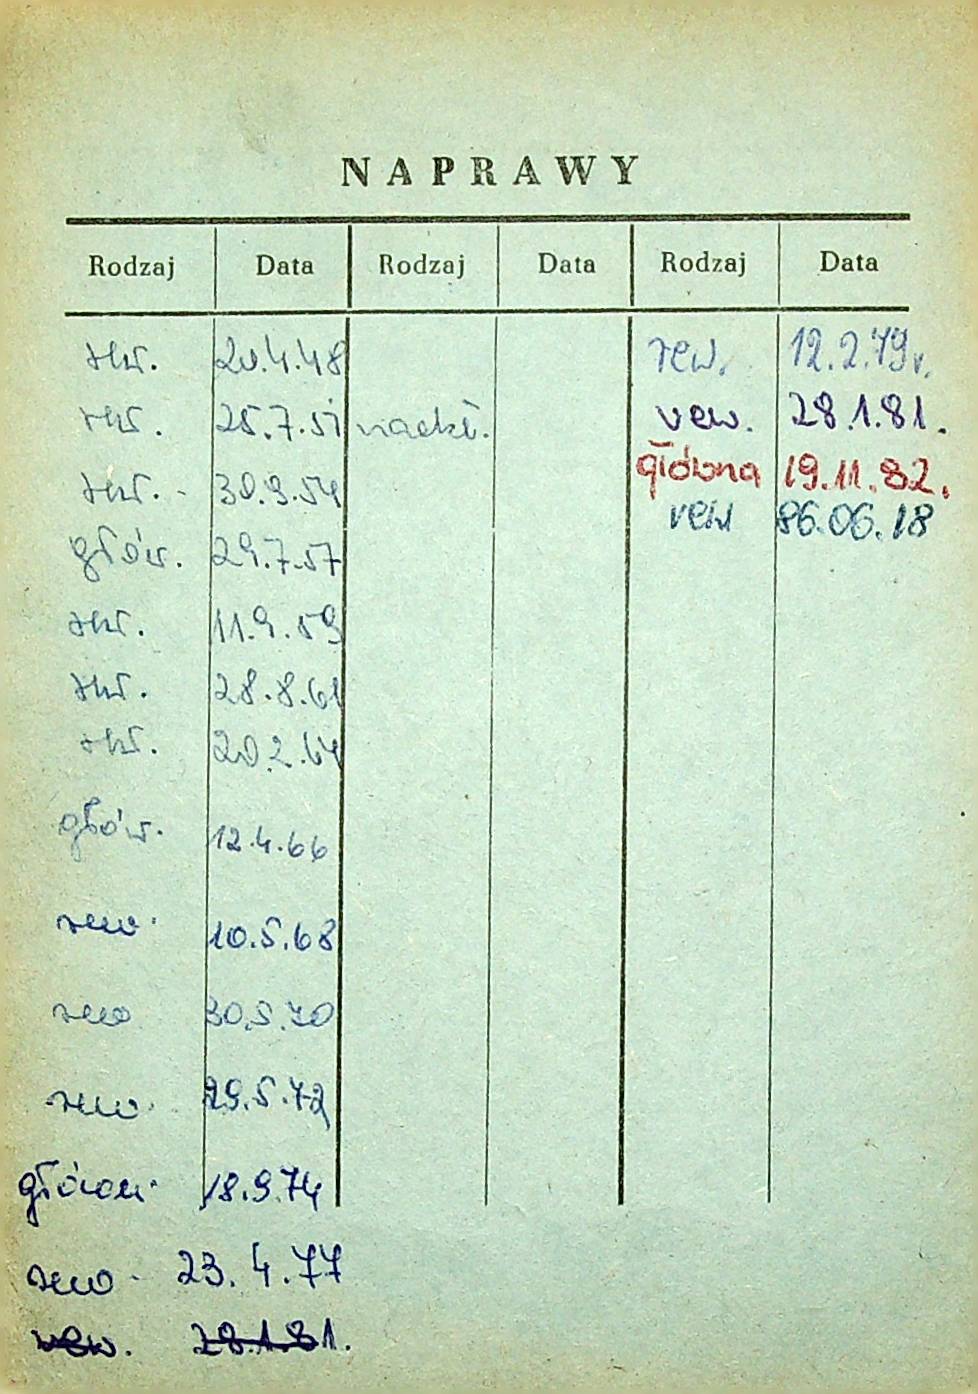 NAPRAWY
Rodzaj Data Rodzaj Data Rodzaj Data
śr. 20.4.48 rew. 12.2.79r.
25.7.51 rew. 28.1.81.
30.9.54 główna 19.11.82.
głów. 29.7.57 rew 86.06.18
11.9.59
28.8.61
20.2.64
głów. 12.4.66
rew. 10.5.68
rew 30.5.70
rew. 29.5.72
główn. 18.9.74
rew. 23.4.77
rew. 28.1.81.